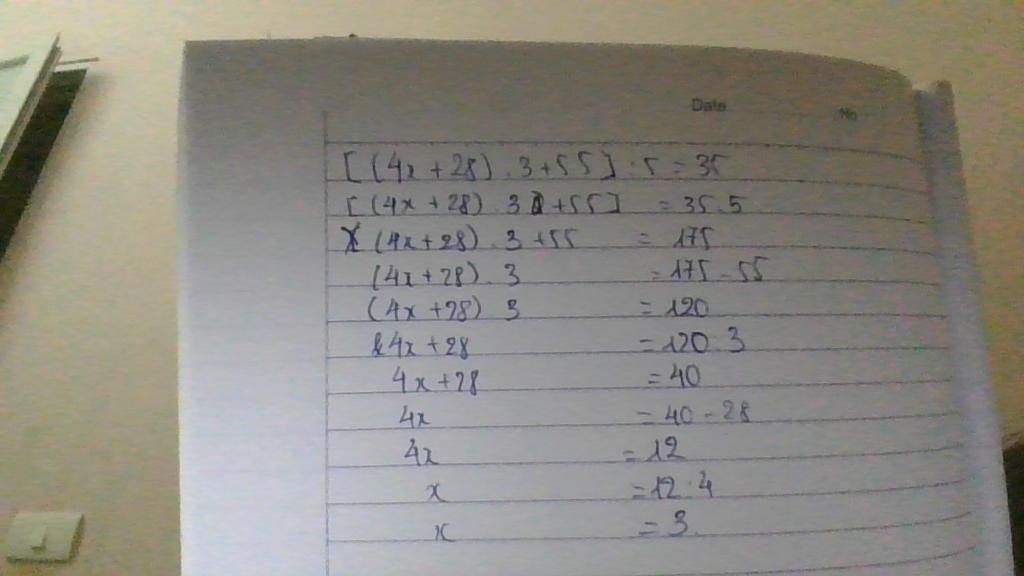 Date
No
[(4x+28).3+55]:5=35
[(4x+28).3+55] =35.5
(4x+28).3+55 =175
(4x+28).3 =175-55
(4x+28).3 =120
4x+28 =120:3
4x+28 =40
4x =40-28
4x =12
x =12:4
x =3.